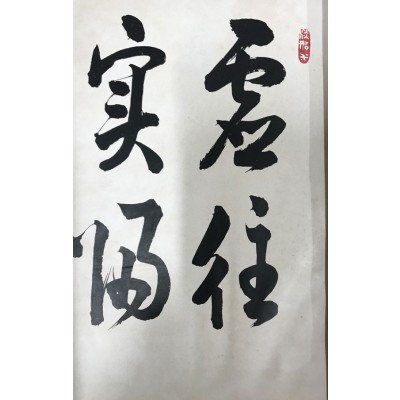 虚往
实归